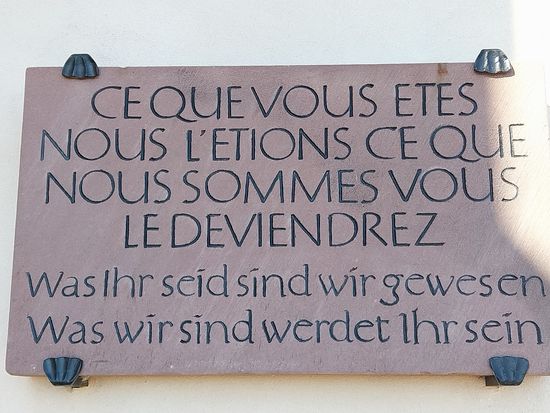 CE QUE VOUS ETES
NOUS L'ETIONS CE QUE
NOUS SOMMES VOUS
LE DEVIENDREZ
Was Ihr seid sind wir gewesen
Was wir sind werdet Ihr sein